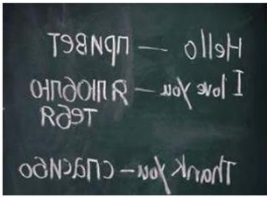 Hello — привет
I love you — Я люблю
тебя
Thank you — спасибо